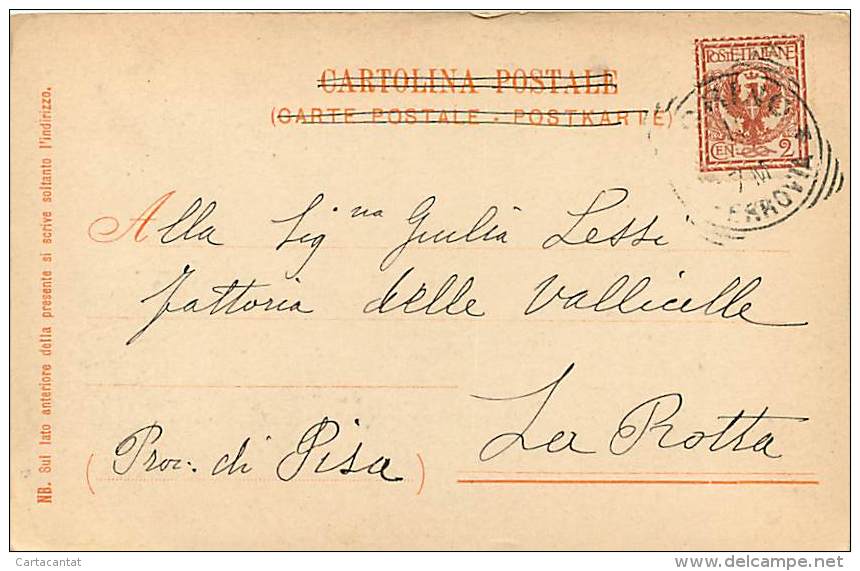 CARTOLINA POSTALE
(CARTE POSTALE - POSTKARTE)
POSTE ITALIANE
CEN. 2
FERROVIA
Alla Sig.na Giulia Lessi
fattoria delle Vallicelle
La Rotta
(Prov. di Pisa)
NB. Sul lato anteriore della presente si scrive soltanto l'indirizzo.
Cartacantat
delcampe.net